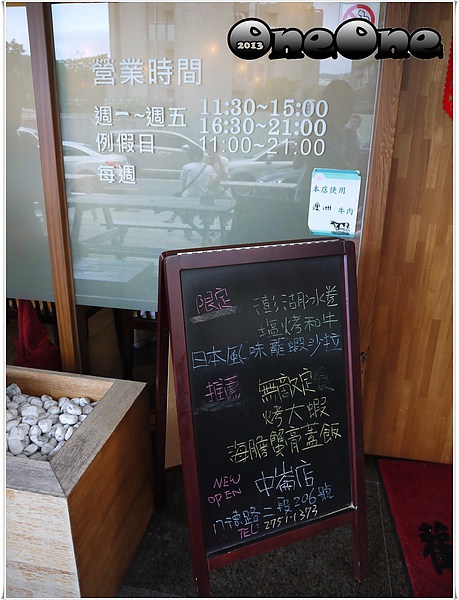 2013 OneOne
營業時間
週一~週五 11:30~15:00
16:30~21:00
例假日 11:00~21:00
每週
本店使用
澳洲 牛肉
限定 澎湖彤冰卷
塩烤和牛
日本風味龍蝦沙拉
推薦 無敵定食
烤大蝦
海膽蟹膏蓋飯
NEW OPEN 中崙店
八德路二段206號
TEL: 2751-1373